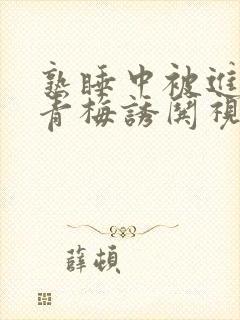 熟睡中被進
青梅誘関視
薛頓